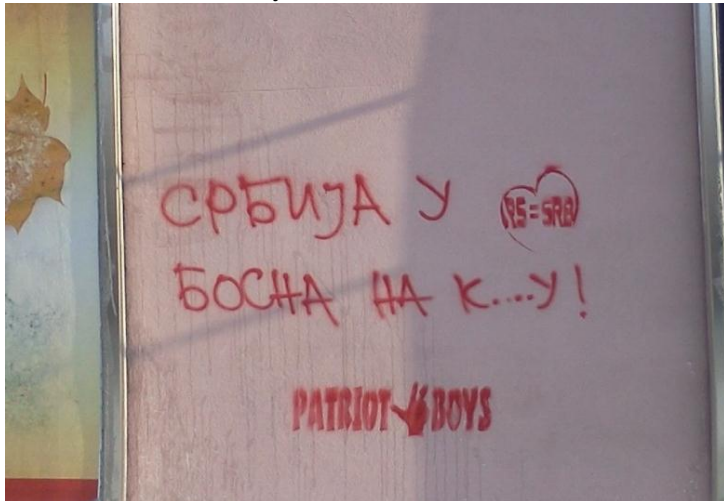 СРБИЈА У RS=SRB
БОСНА НА К....У!
PATRIOT BOYS